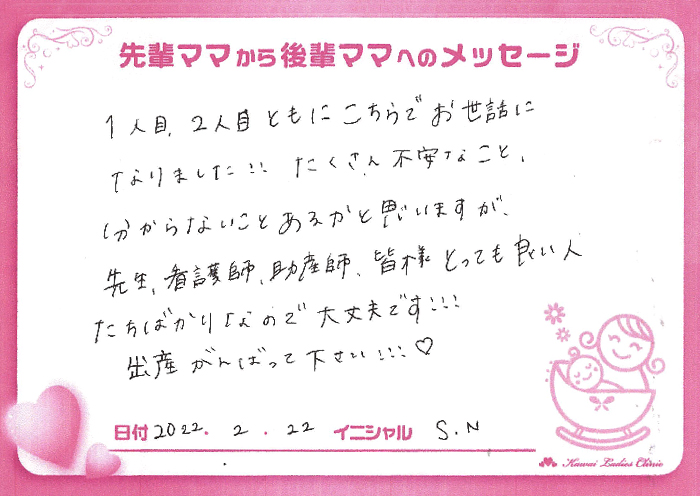 先輩ママから後輩ママへのメッセージ
1人目、2人目ともにこちらでお世話に
なりました!! たくさん不安なこと、
分からないことあるかと思いますが、
先生、看護師、助産師、皆様とっても良い人
たちばかりなので大丈夫です!!!
出産がんばって下さい!!!♡
日付 2022. 2. 22 イニシャル S.N
Kawai Ladies Clinic